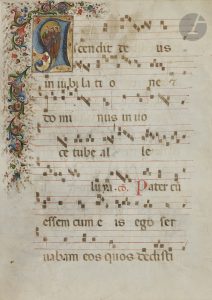 Ascendit de us
in iubi la ti o ne &
do mi nus in uo
ce tube al le
luya. Co. Pater cū
essem cum e is ego ser
uabam eos quos dedisti